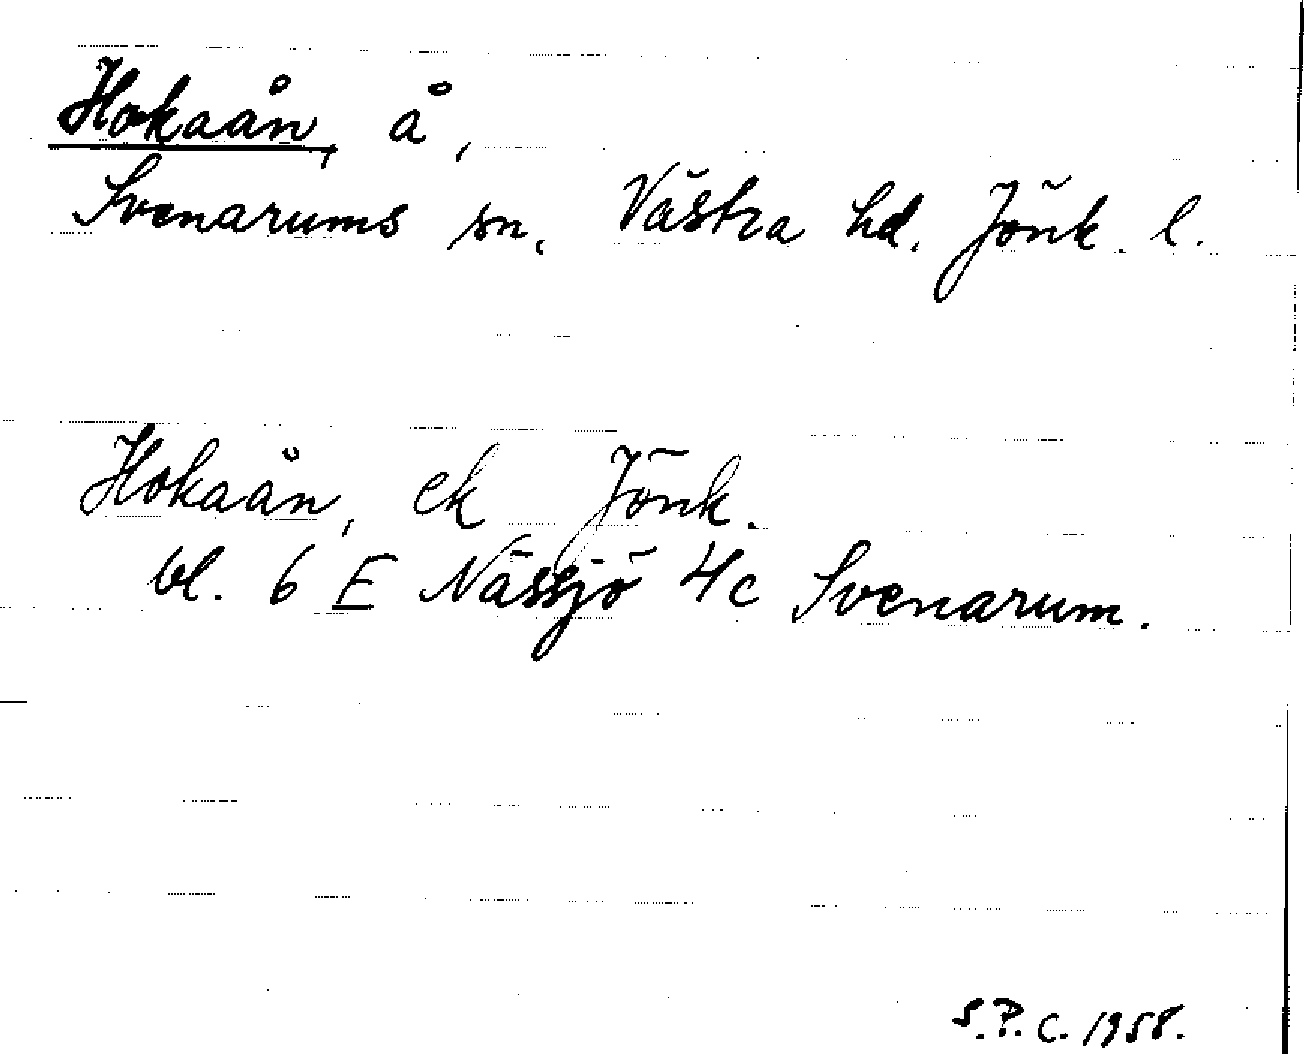 Hokaån, å,
Svenarums sn. Västra hd. Jönk. l.
Hokaån, ek Jönk.
bl. 6 E Nässjö 4c Svenarum.
S.P.C. 1958.